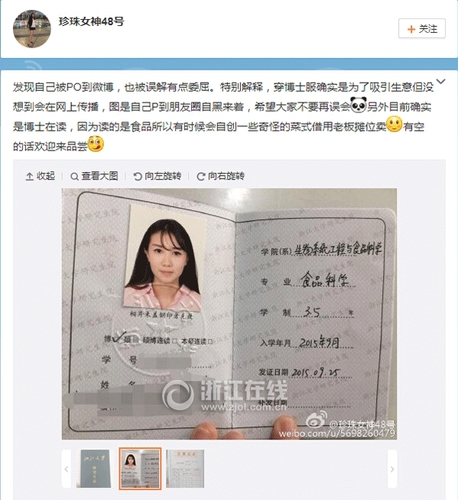 珍珠女神48号
+ 关注
发现自己被PO到微博，也被误解有点委屈。特别解释，穿博士服确实是为了吸引生意但没
想到会在网上传播，图是自己P到朋友圈自黑来着，希望大家不要再误会 另外目前确实
是博士在读，因为读的是食品所以有时候会自创一些奇怪的菜式借用老板摊位卖 有空
的话欢迎来品尝
收起 查看大图 向左旋转 向右旋转
学院(系) 生物系统工程与食品科学
专业 食品科学
学制 3.5 年
相片未盖钢印者无效
博 硕博连读 本硕连读
入学年月 2015年9月
学号
发证日期 2015.09.25
姓名
补发日期
浙江在线
www.zjol.com.cn
@珍珠女神48号
weibo.com/u/5698260479